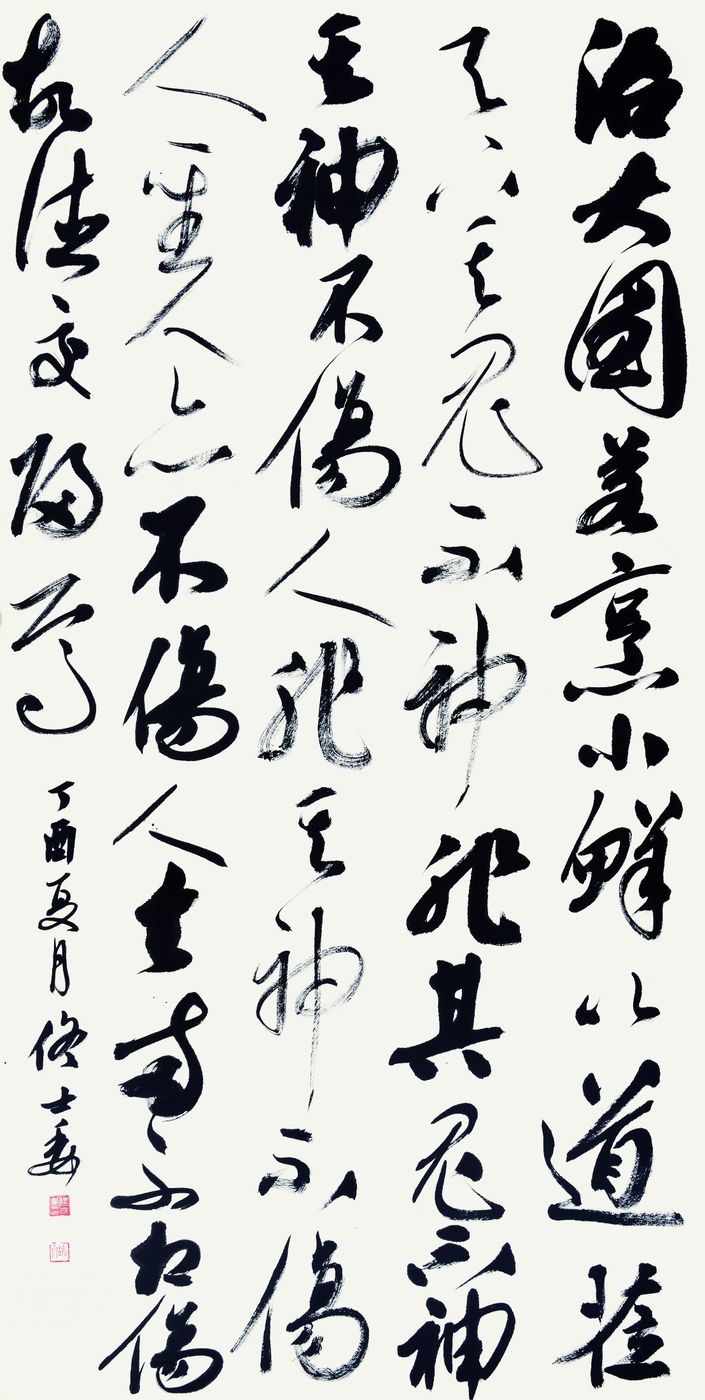 治大國若烹小鮮以道莅
天下其鬼不神非其鬼不神
其神不傷人非其神不傷
人聖人亦不傷人夫兩不相傷
故德交歸焉
丁酉夏月